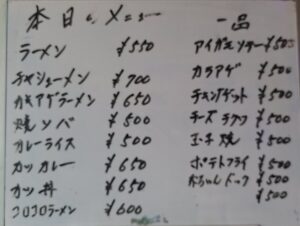 本日のメニュー
ラーメン ¥550
チャシューメン ¥700
カキアゲラーメン ¥650
焼ソバ ¥500
カレーライス ¥500
カツカレー ¥650
カツ丼 ¥650
コロコロラーメン ¥600
一品
¥505
カラアゲ ¥500
チキンナゲット ¥500
チーズ ¥500
玉子焼 ¥500
ポテトフライ ¥500
赤ちゃんドック ¥500
¥500